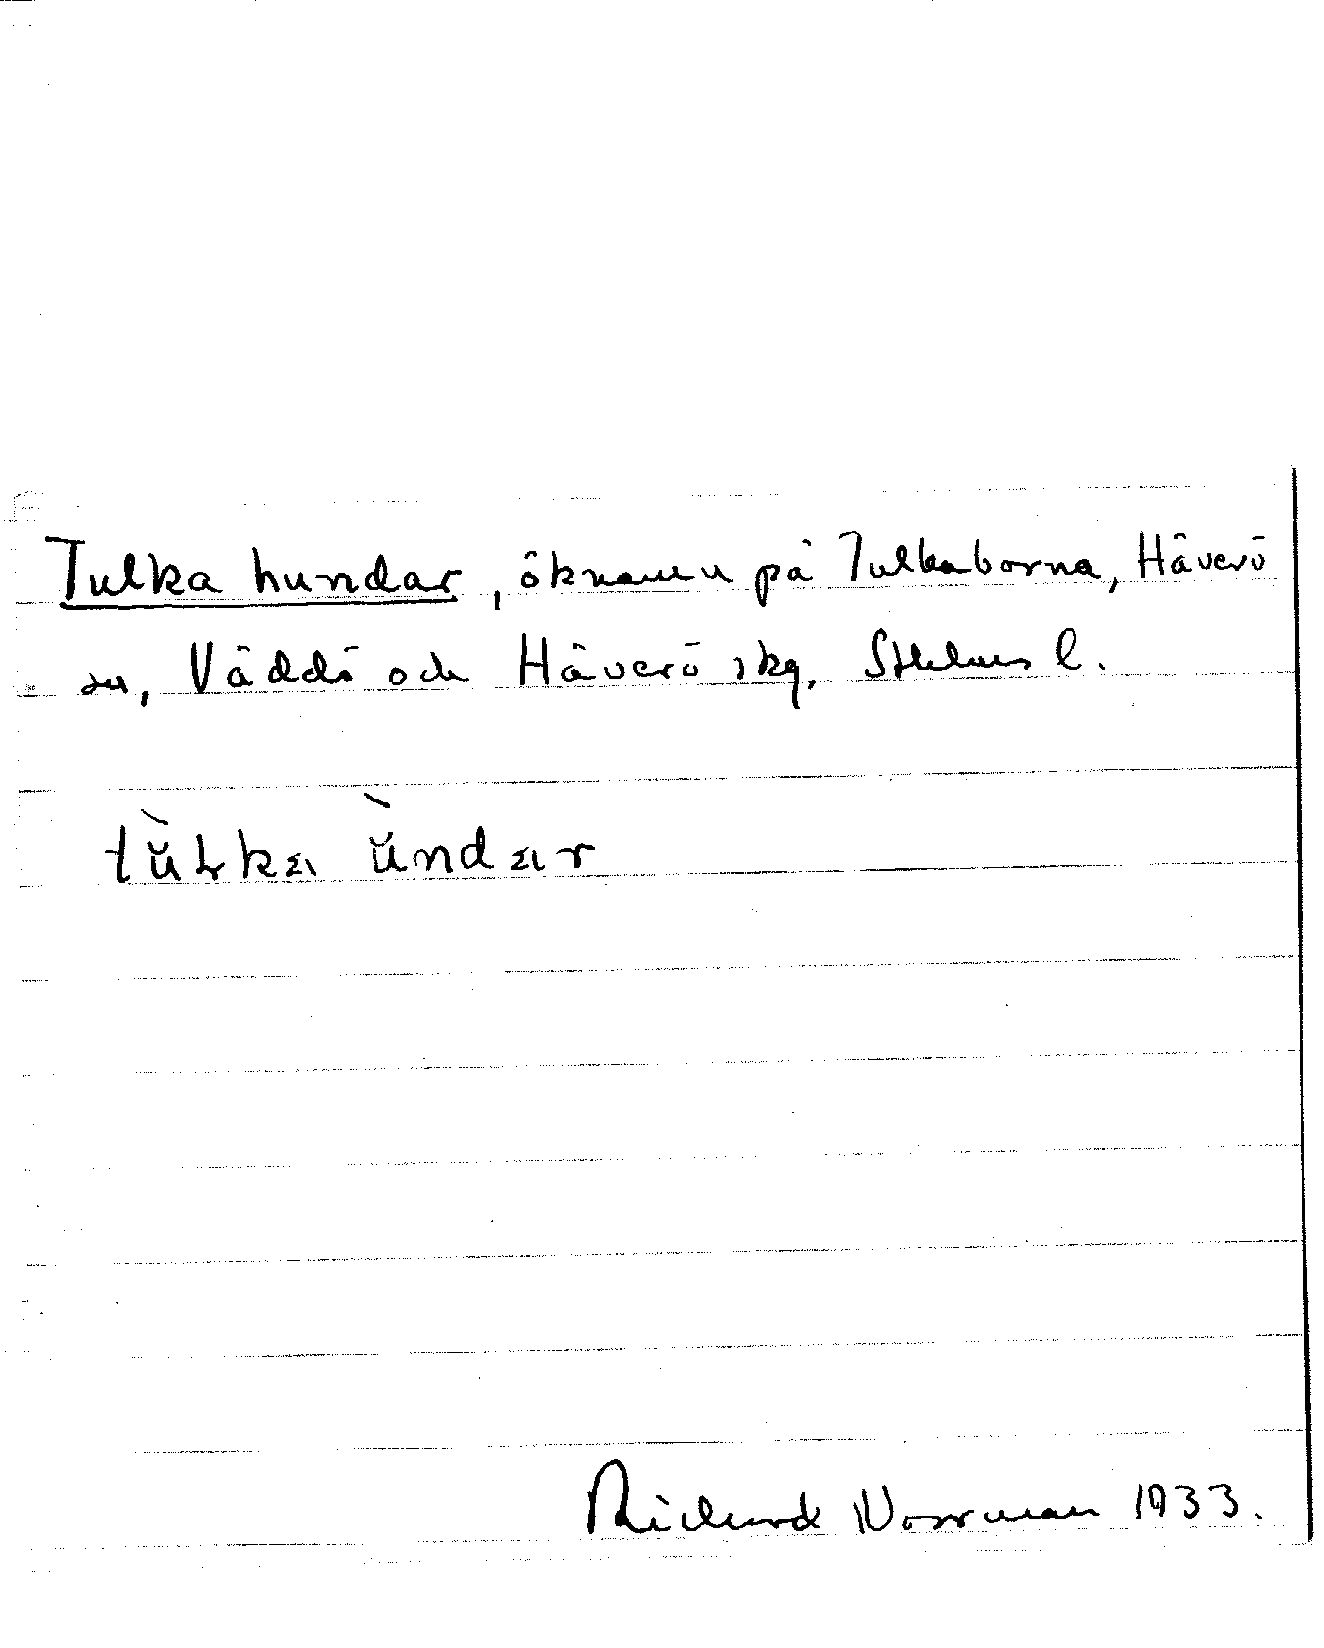 Tulka hundar, öknamn på Tulkaborna, Häverö
sn, Väddö och Häverö skg, Sthlms l.
tùLka ùndar
Richard Norrman 1933.